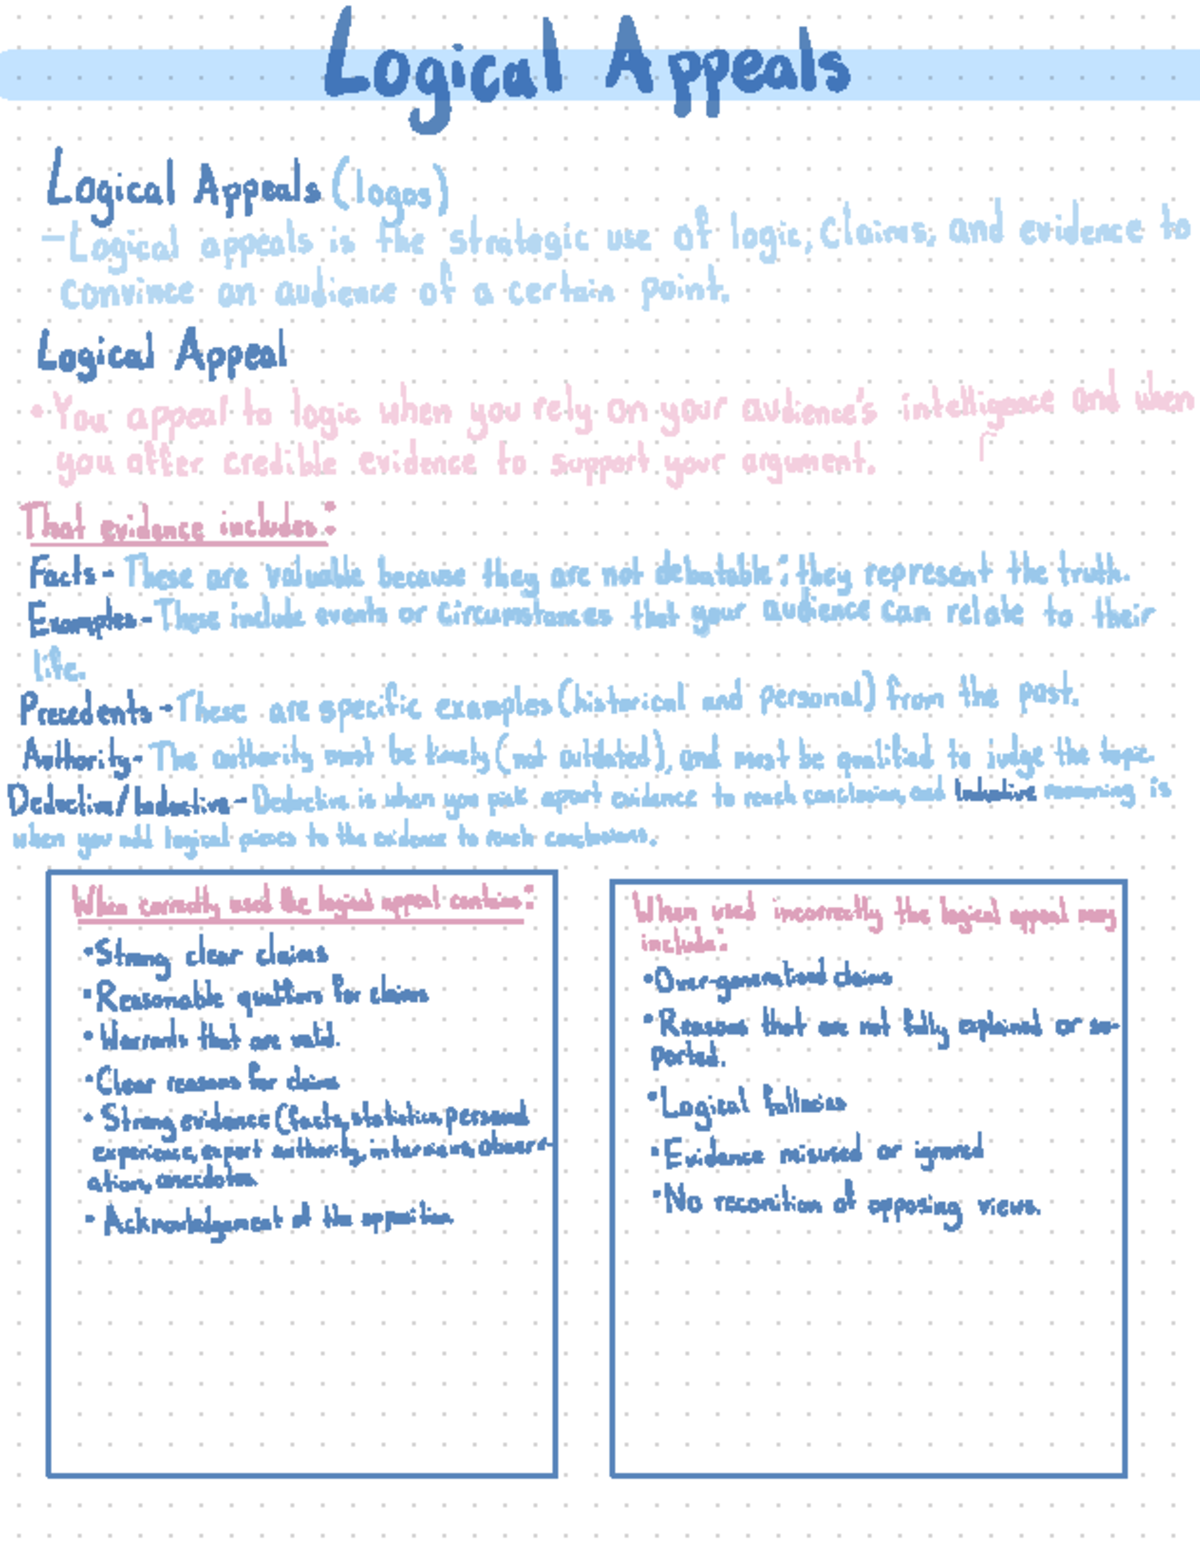 Logical Appeals
Logical Appeals (logos)
-Logical appeals is the strategic use of logic, claims, and evidence to
convince an audience of a certain point.
Logical Appeal
• You appeal to logic when you rely on your audience's intelligence and when
you offer credible evidence to support your argument.
That evidence includes:
Facts- These are valuable because they are not debatable; they represent the truth.
Examples-These include events or circumstances that your audience can relate to their
life.
Precedents-These are specific examples (historical and personal) from the past.
Authority- The authority must be timely (not outdated), and must be qualified to judge the topic.
Deductive/Inductive- Deductive is when you pick apart evidence to reach conclusion, and Inductive reasoning is
when you add logical pieces to the evidence to reach conclusions.
When correctly used the logical appeal contains:
•Strong clear claims
•Reasonable for claims
•Warrants that are valid.
•Clear reasons for claims
• Strong evidence (facts, statistics, personal
experience, expert authority, interviews, observ-
ation, anecdotes
• Acknowledgement of the opposition
When used incorrectly the logical appeal may
include:
•Over-generalized claims
•Reasons that are not fully explained or su-
ported.
•Logical fallacies
•Evidence misused or ignored
•No reconition of opposing views.